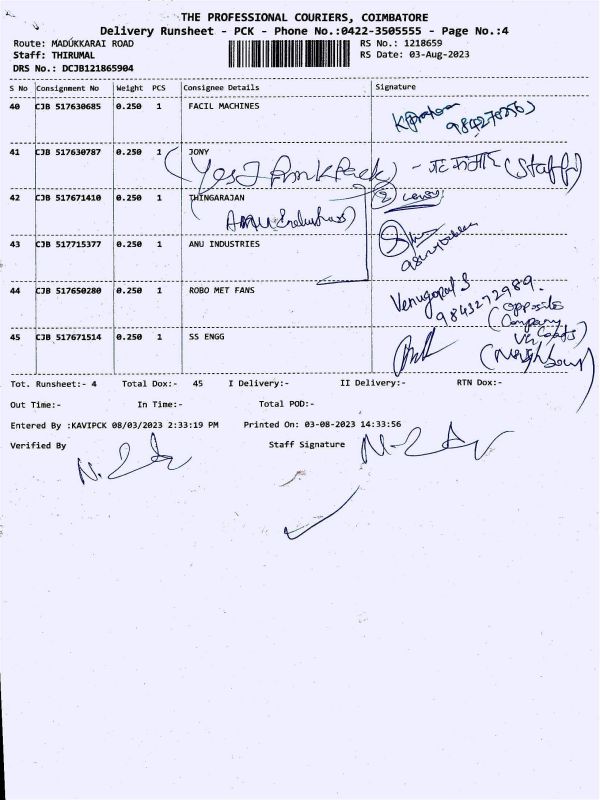 THE PROFESSIONAL COURIERS, COIMBATORE
Delivery Runsheet - PCK - Phone No.:0422-3505555 - Page No.:4
Route: MADUKKARAI ROAD
RS No.: 1218659
Staff: THIRUMAL
RS Date: 03-Aug-2023
DRS No.: DCJB121865904
S No Consignment No Weight PCS Consignee Details Signature
40 CJB 517630685 0.250 1 FACIL MACHINES
41 CJB 517630787 0.250 1 JONY
(Staff)
42 CJB 517671410 0.250 1 THINGARAJAN
43 CJB 517715377 0.250 1 ANU INDUSTRIES
44 CJB 517650280 0.250 1 ROBO MET FANS
Venugopal S
9843272989.
(opposite
Company
45 CJB 517671514 0.250 1 SS ENGG
(Neighbour)
Tot. Runsheet:- 4 Total Dox:- 45 I Delivery:- II Delivery:- RTN Dox:-
Out Time:- In Time:- Total POD:-
Entered By :KAVIPCK 08/03/2023 2:33:19 PM Printed On: 03-08-2023 14:33:56
Verified By Staff Signature